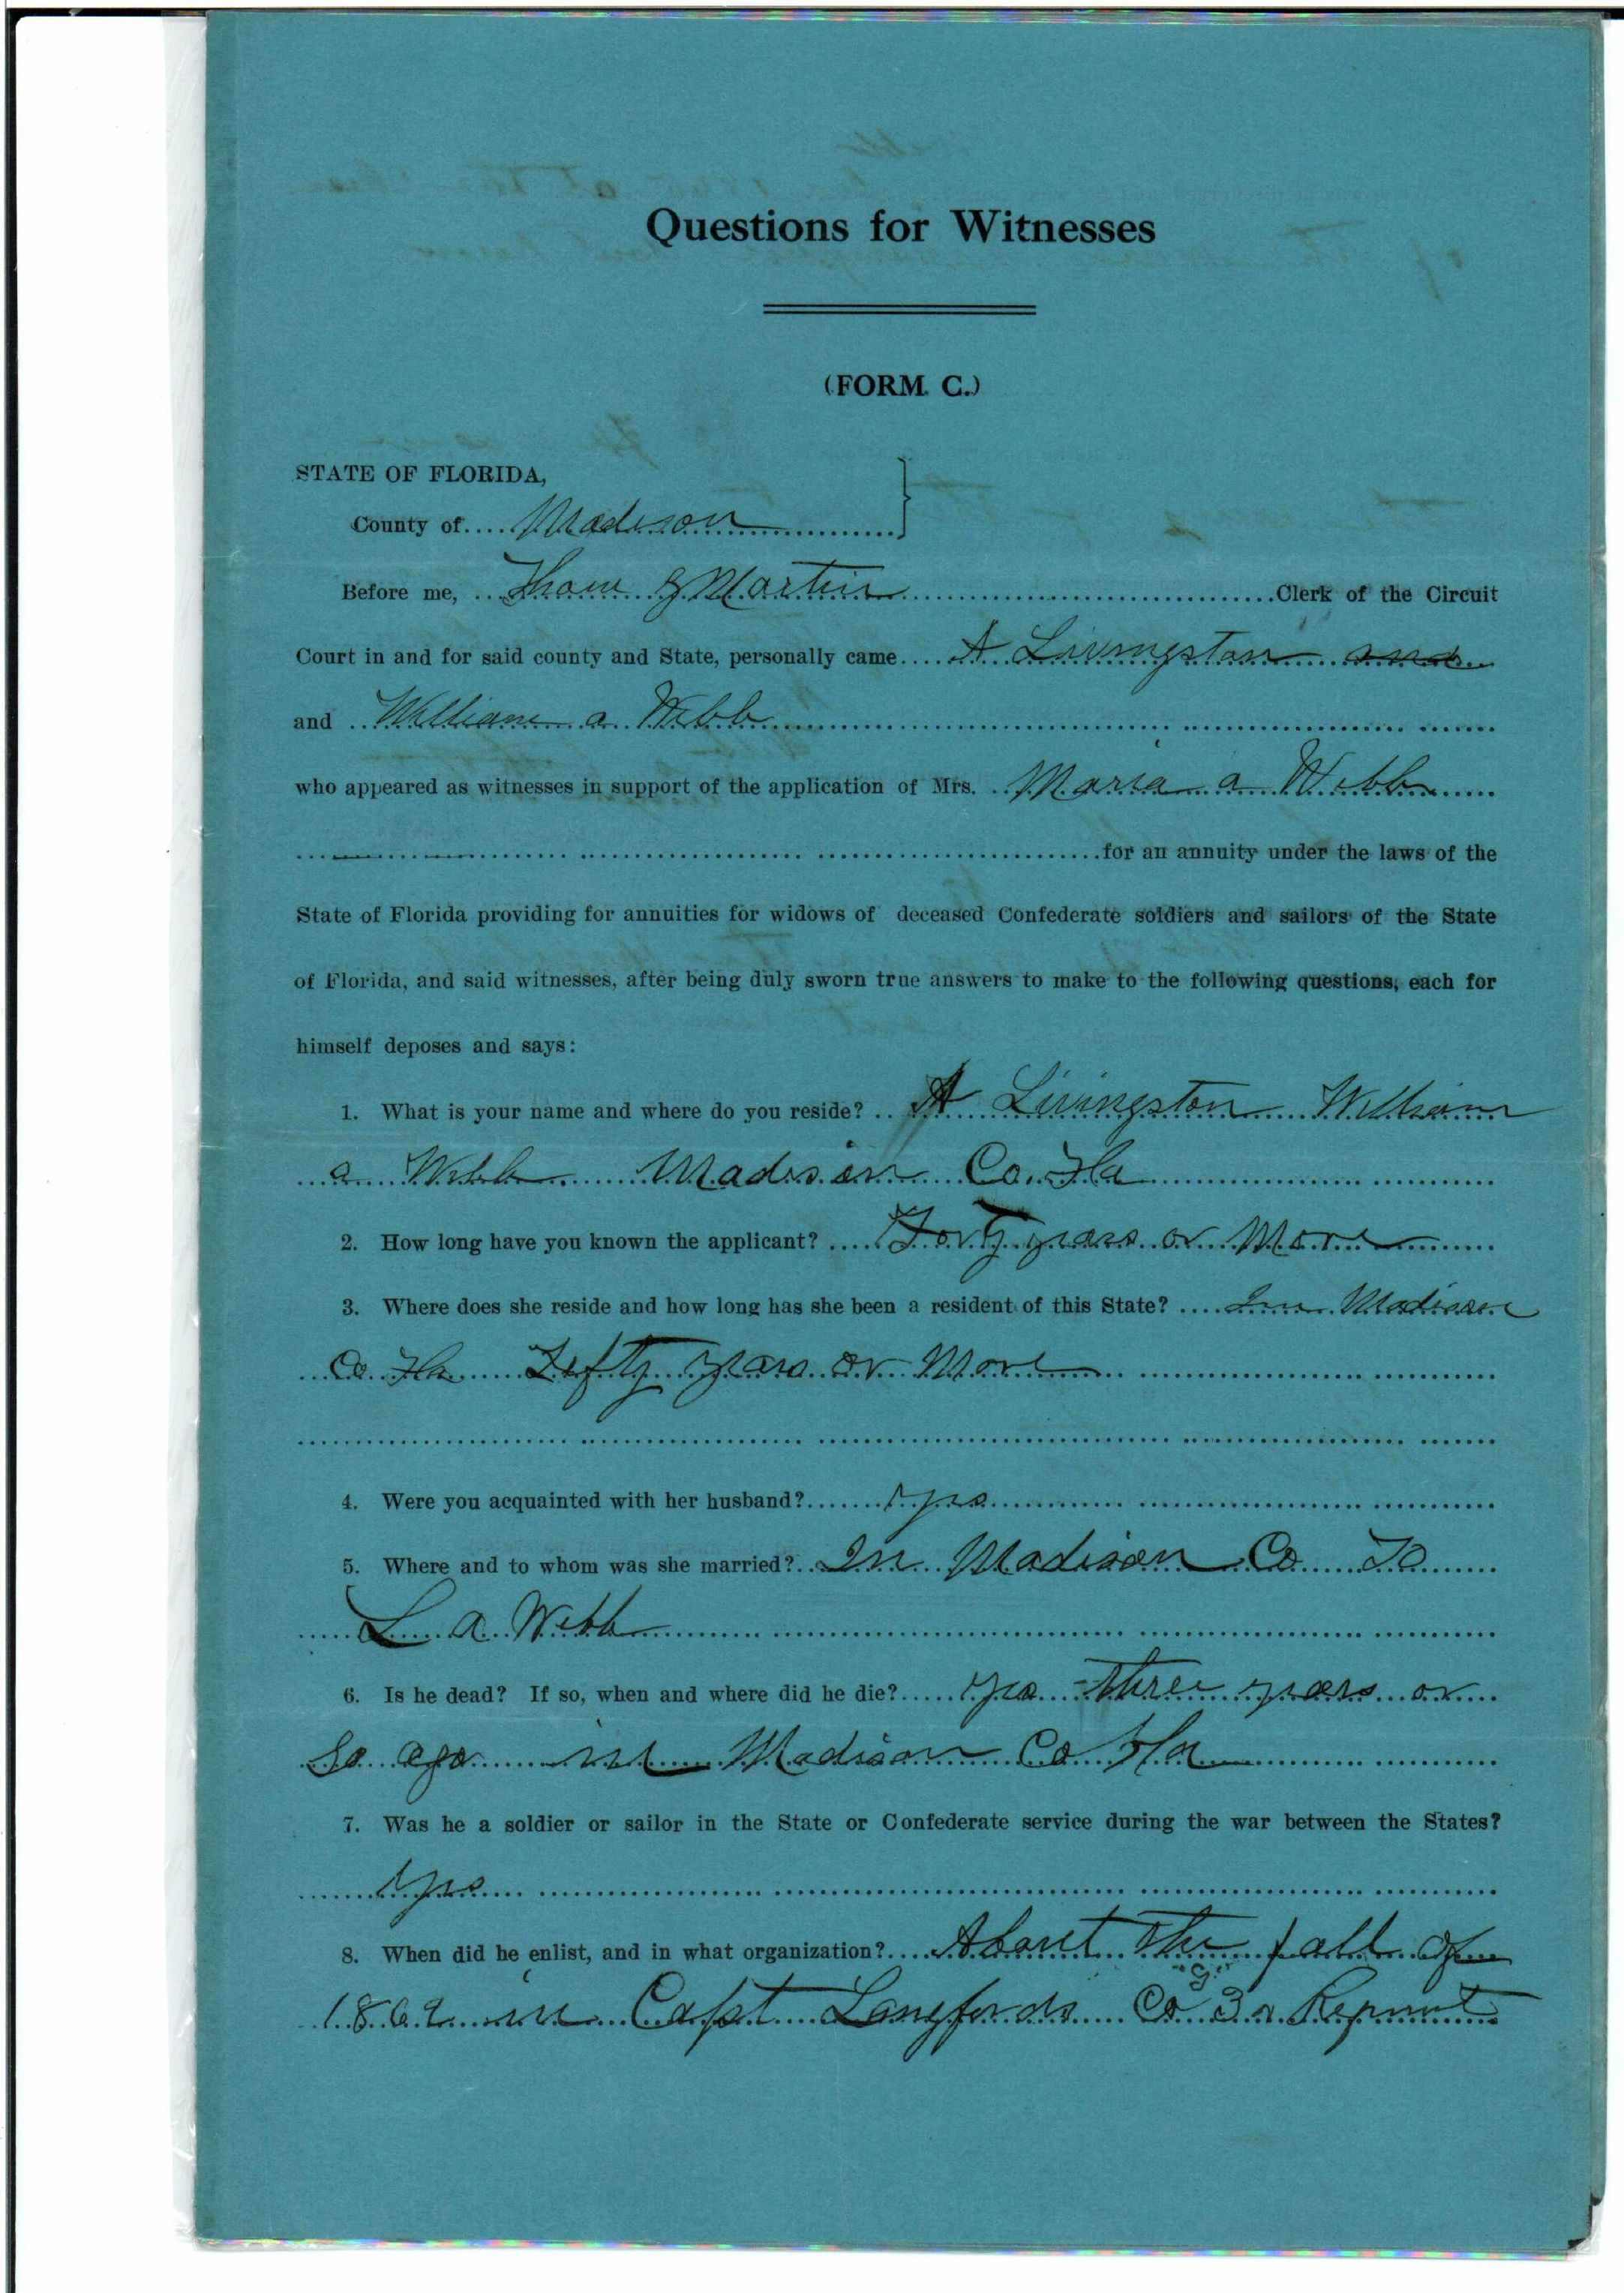 Questions for Witnesses
(FORM C.)
STATE OF FLORIDA,
County of Madison
Before me, Martin Clerk of the Circuit
Court in and for said county and State, personally came A Livingston and
and William a Webb
who appeared as witnesses in support of the application of Mrs. Maria a Webb
for an annuity under the laws of the
State of Florida providing for annuities for widows of deceased Confederate soldiers and sailors of the State
of Florida, and said witnesses, after being duly sworn true answers to make to the following questions, each for
himself deposes and says:
1. What is your name and where do you reside? A Livingston William
a Webb Madison Co. Fla
2. How long have you known the applicant? Forty years or More
3. Where does she reside and how long has she been a resident of this State? In Madison
Co Fla Fifty years or More
4. Were you acquainted with her husband? yes
5. Where and to whom was she married? In Madison Co To
L a Webb
6. Is he dead? If so, when and where did he die? yes three years or
so ago in Madison Co Fla
7. Was he a soldier or sailor in the State or Confederate service during the war between the States?
yes
8. When did he enlist, and in what organization? About the fall of
in Capt Langfords Co "G" 3